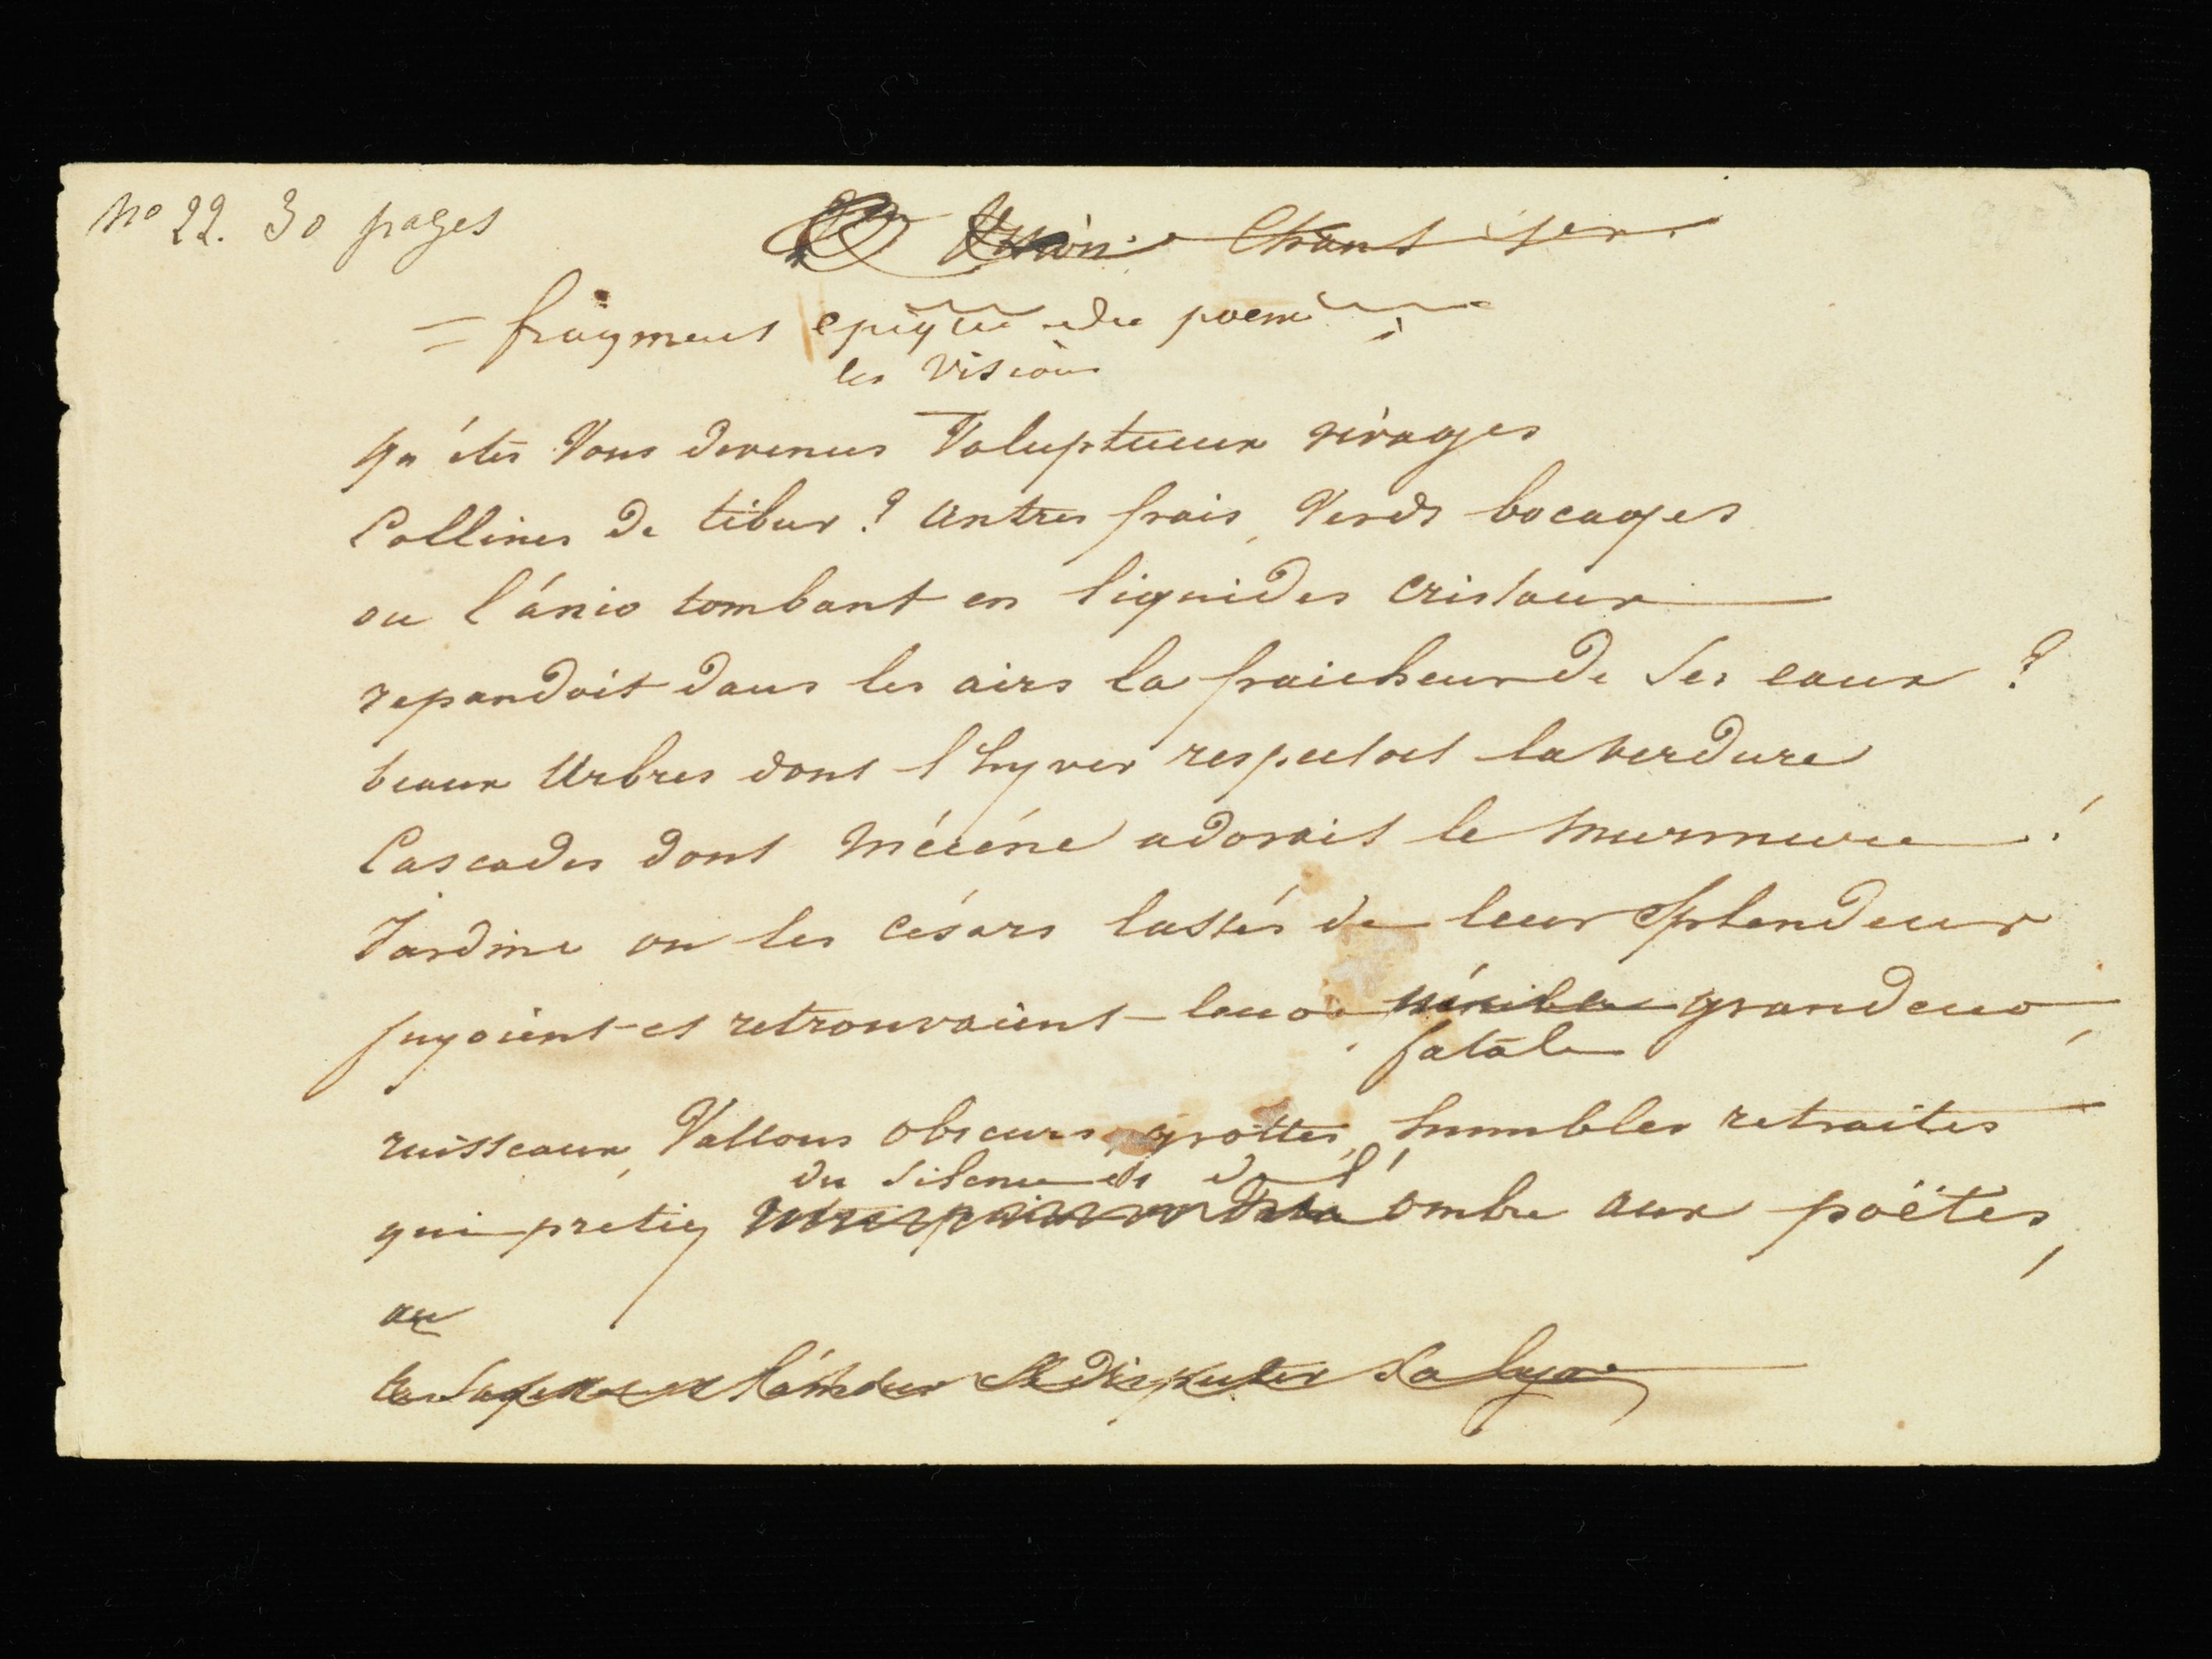 No 22. 30 pages
Chant 1er.
= fragment epique du poeme
les visions
qu'etes Vous devenus Voluptueux rivages
Collines de tibur ? antres frais, Verds bocages
ou l'ánio tombant en liquides cristaux
repandoit dans les airs la fraicheur de ses eaux ?
beaux arbres dont l'hyver respectoit la verdure
Cascades dont Mécéne adorait le murmure !
Jardins ou les césars lassés de leur splendeur
fuyoient et retrouvaient leur pénible grandeur,
fatale
ruisseaux, Vallons obscurs, grottes, humbles retraites
du silence et de l'
qui pretiez ombre aux poëtes,
au
disputer la lyre